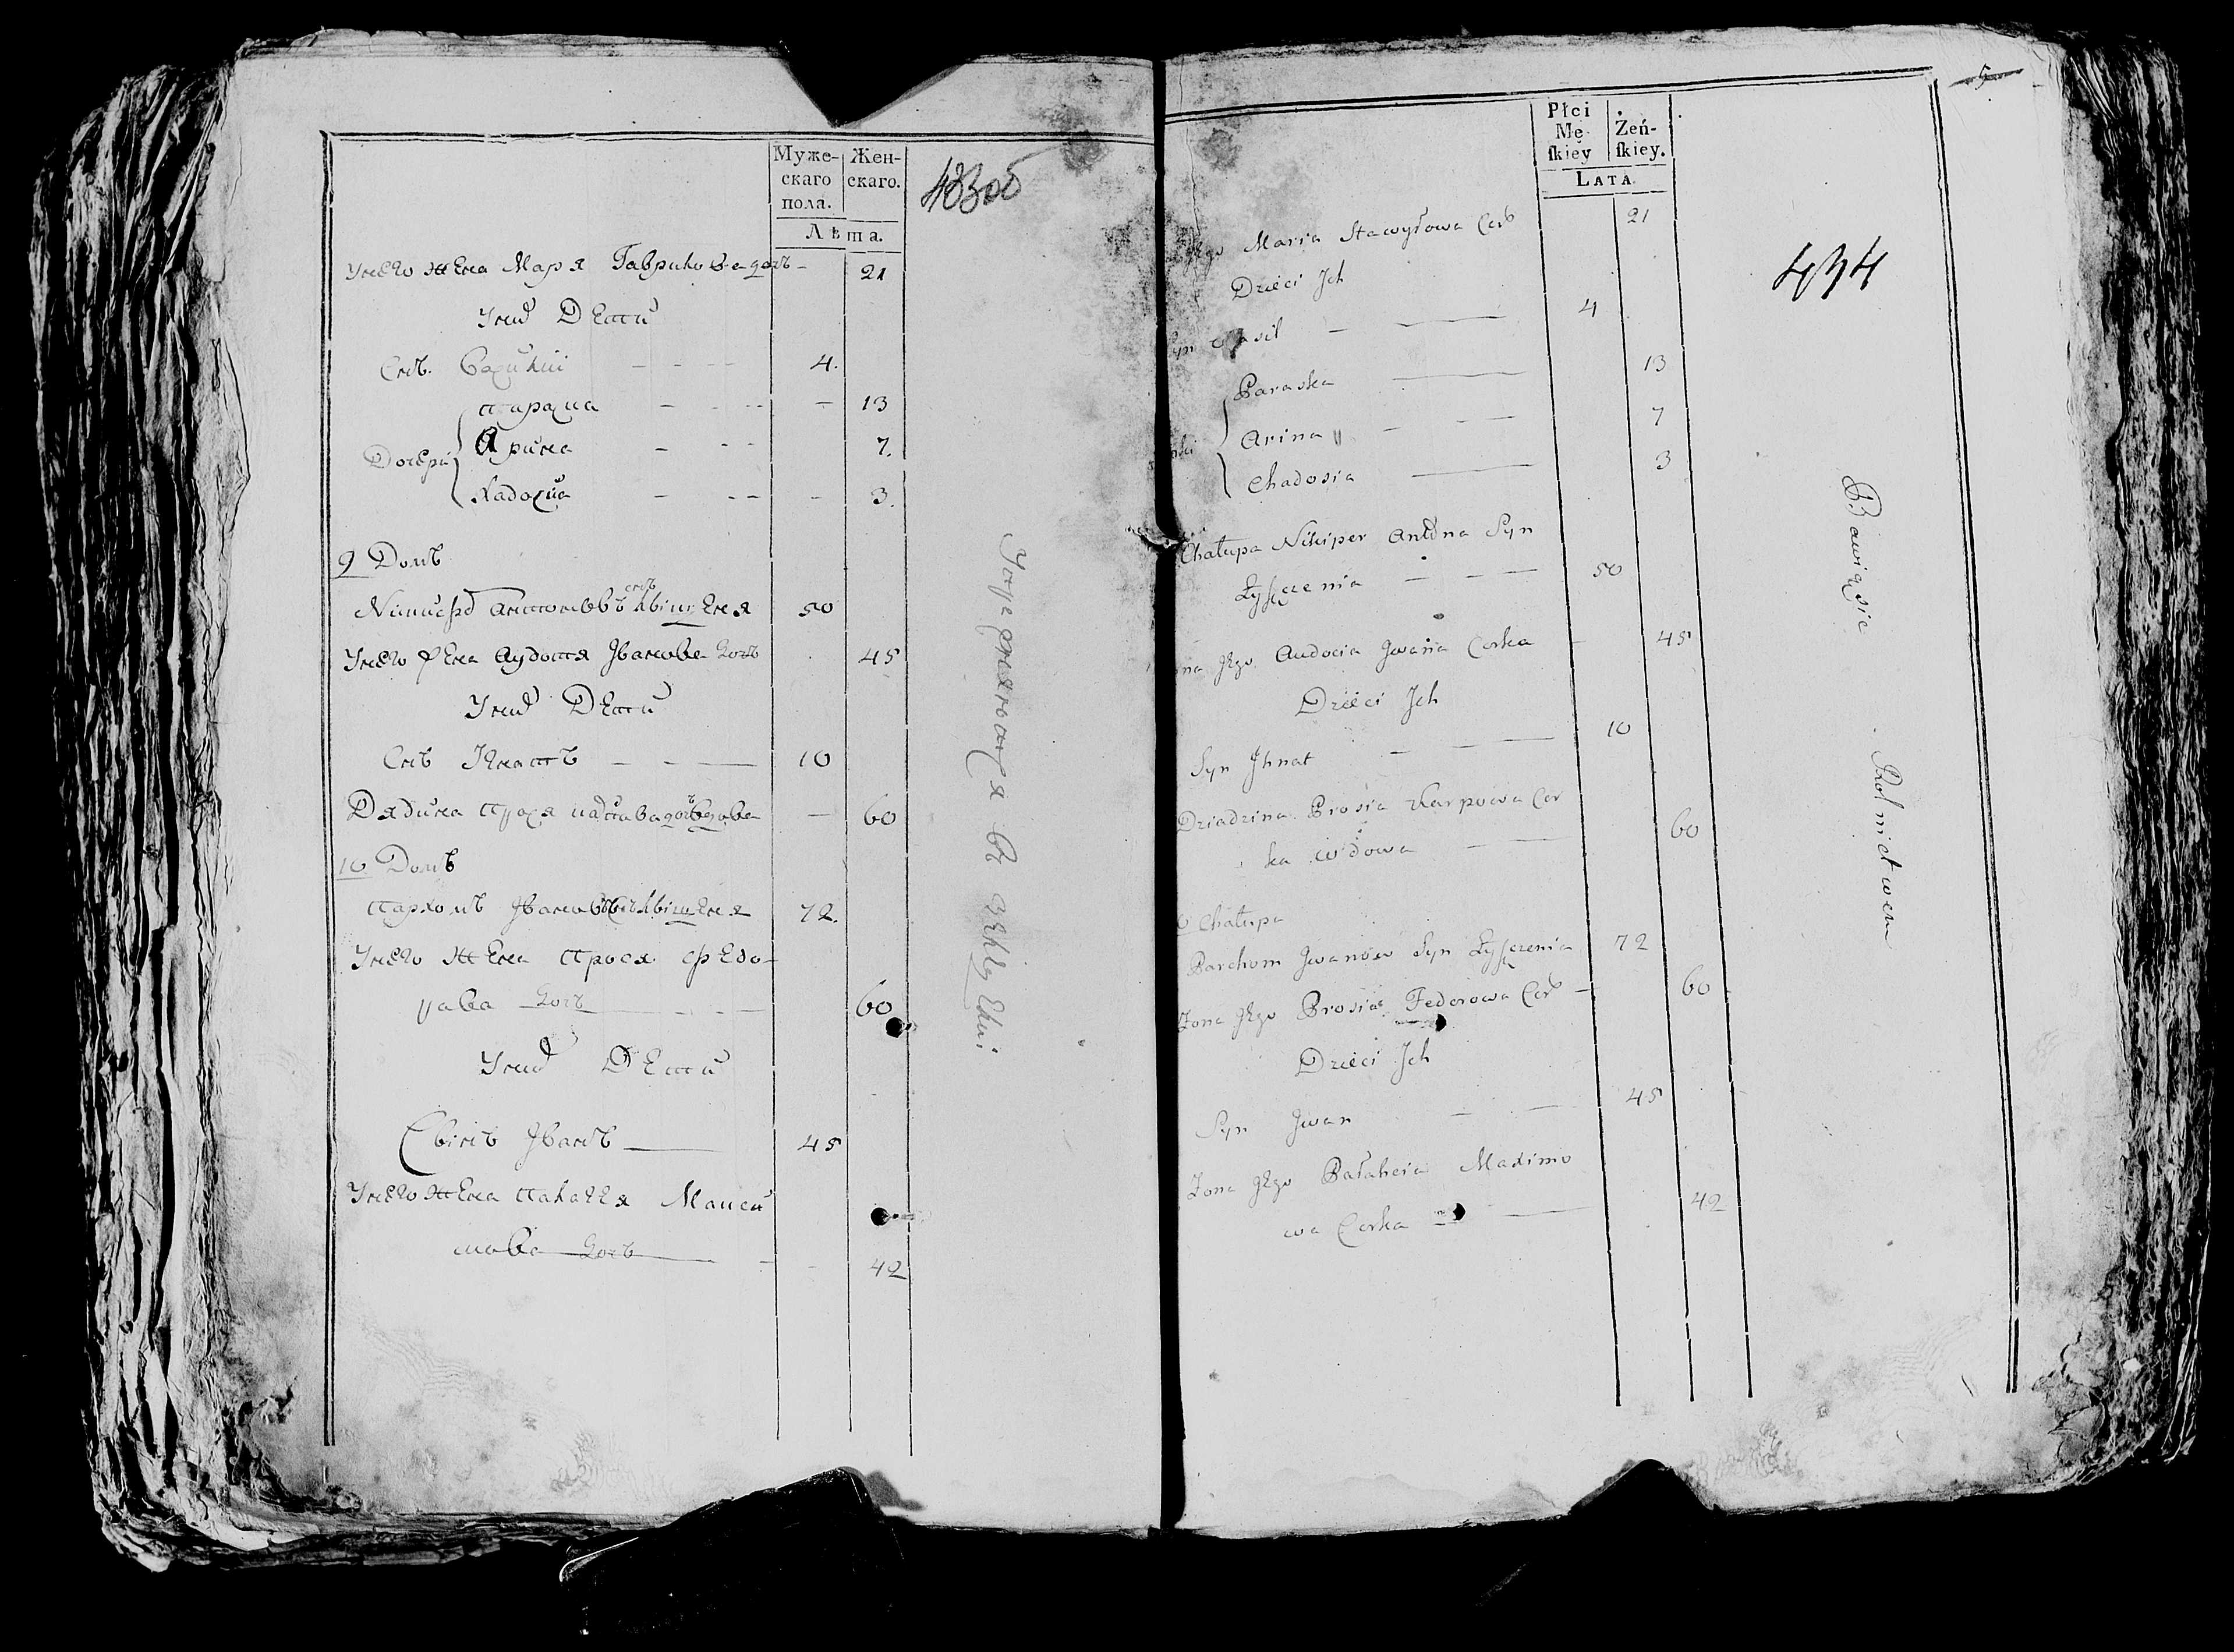 Муже-
скаго
пола.
Жен-
скаго.
Лѣта.
433об
Унего жена Маря Гаврилова дочь 21
Уних Дети
Снъ. Василий 4.
Параска 13
Дочери Арина 7.
Хадосия 3.
9 Домъ
Никифор Антоновъ снъ Лвіщеня 50
Унего жена Аудотя Јванова дочъ 45
Уних Дети
Снъ Јгнатъ 10
Дядина Прося дочъ вдова 60
10 Домъ
Пархомъ Јвановъ Снъ Лвіщеня 72.
Унего жена Прося Федо-
рава дочъ 60
Уних Дети
Свінъ Јванъ 45
Унего жена Палагея Макси
мова дочъ 42
Упражняюща въ
5
Płci
Mę-
ſkiey
Żeń-
ſkiey.
LATA.
434
Jego Maria Hawryłowa Cor 21
Dzieci Jch
Syn Wasil 4
Paraska 13
Arina 7
Chadosia 3
Chałupa Nikiper Antona Syn
Łyſzczenia 50
Jego Audocia Jwana Corka 45
Dzieci Jch
Syn Jhnat 10
Dziadzina Prosia Karpowa Cor
ka wdowa 60
Chałupa
Parchom Jwanow Syn Łyſzczenia 72
Zona Jego Prosia Fedorowa Cor 60
Dzieci Jch
Syn Jwan 45
Zona Jego Pałaheia Maximo
wa Corka 42
Bawią się Rolnictwem